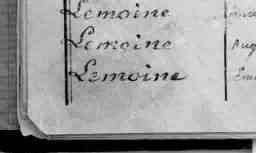 Lemoine
Lemoine Aug
Lemoine